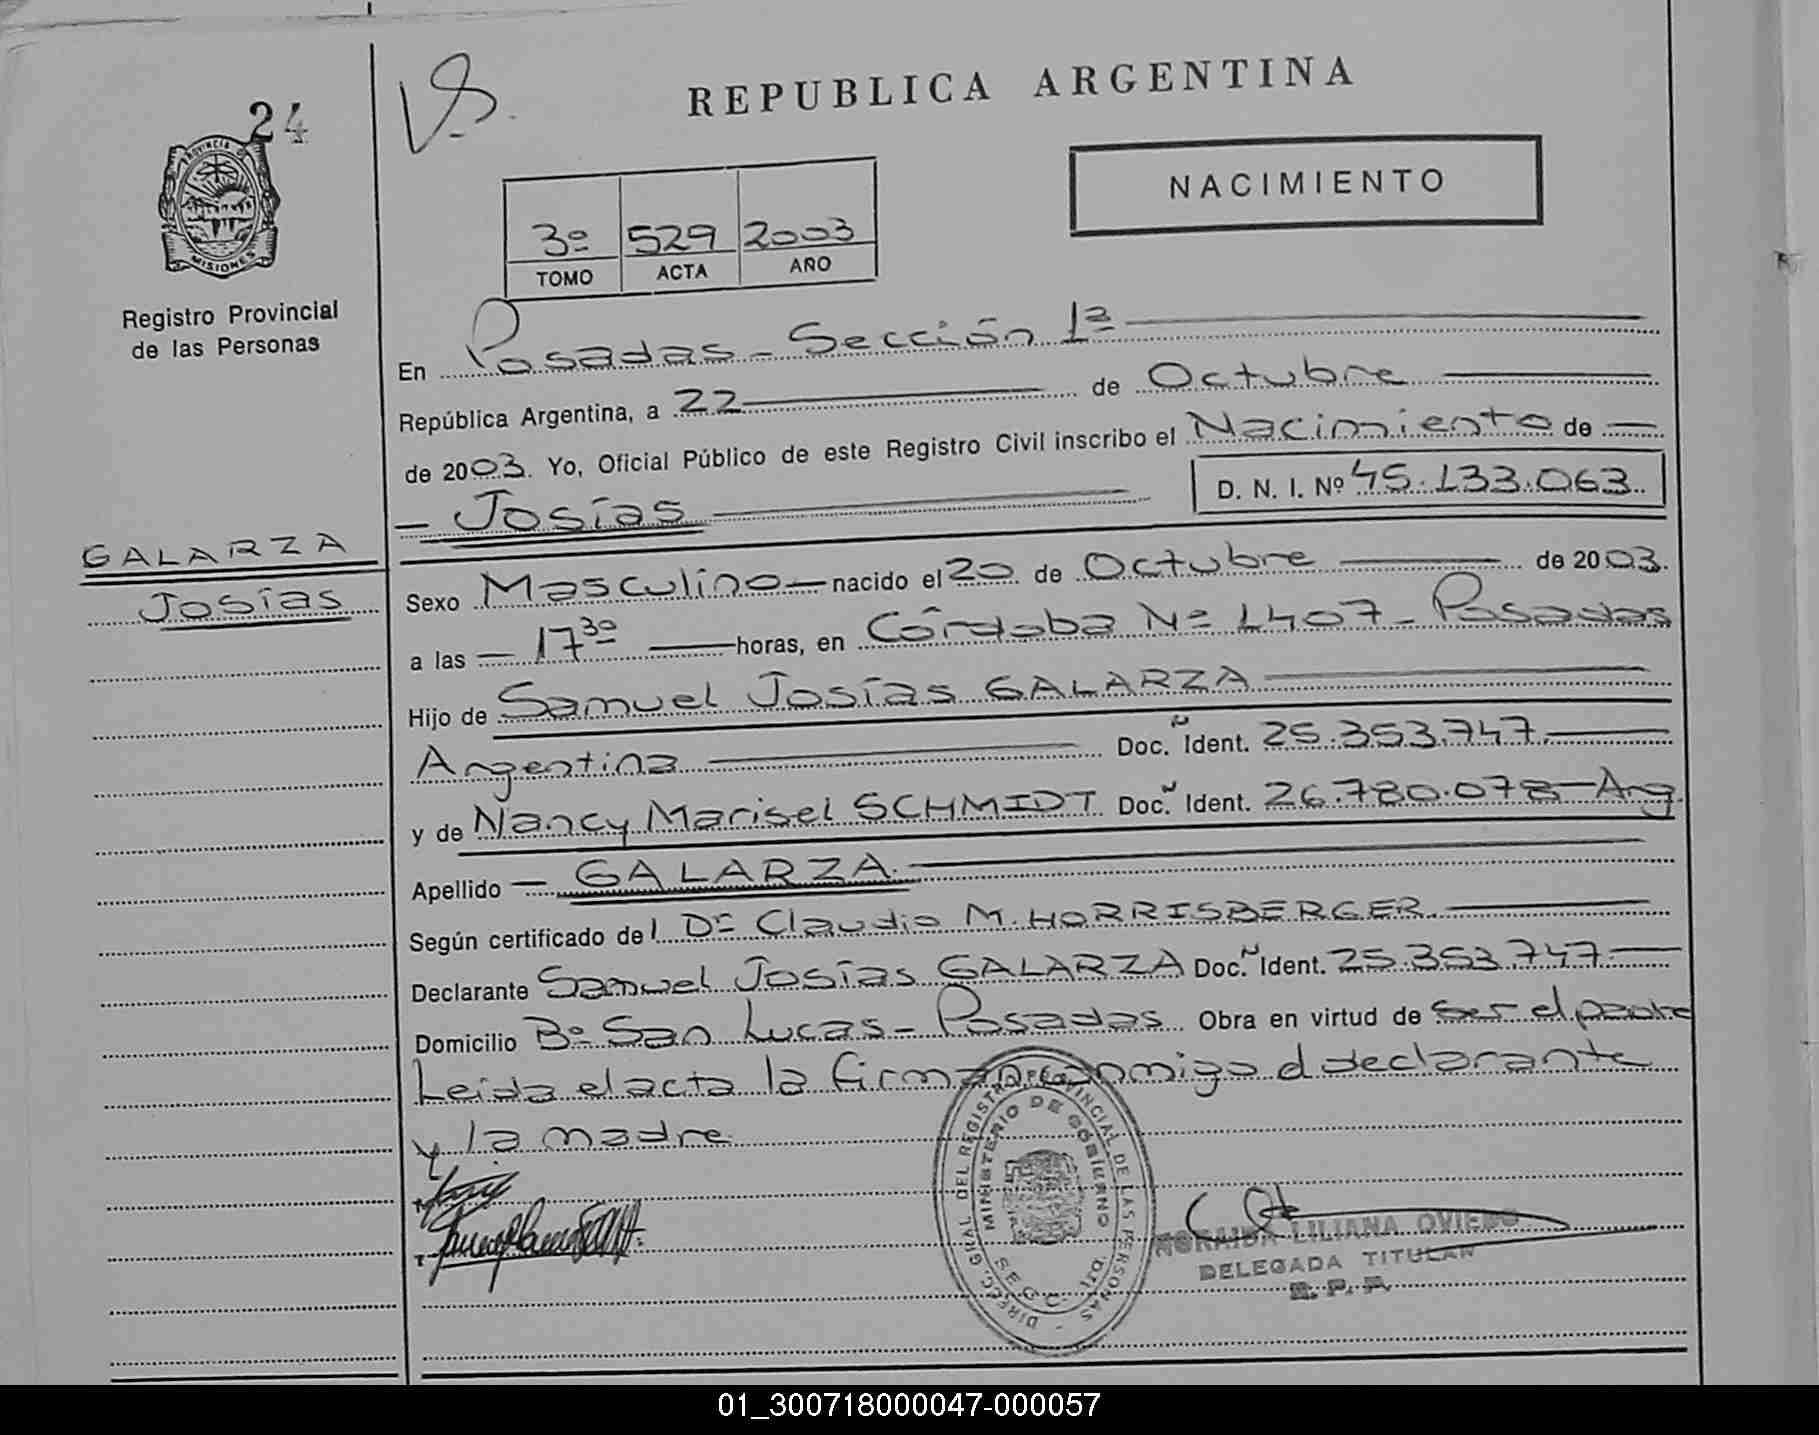 24
V.B.
REPUBLICA ARGENTINA
PROVINCIA DE
MISIONES
NACIMIENTO
3º 529 2003
TOMO ACTA AÑO
Registro Provincial
de las Personas
En Posadas - Sección 1ª
República Argentina, a 22 de Octubre
de 2003. Yo, Oficial Público de este Registro Civil inscribo el Nacimiento de
D. N. I. Nº 45.133.063
- Josías
GALARZA
Josías
Sexo Masculino nacido el 20 de Octubre de 2003.
a las - 17 30 horas, en Córdoba Nº 1407 - Posadas
Hijo de Samuel Josías GALARZA
Argentina Doc. Ident. 25.353.747.
y de Nancy Marisel SCHMIDT Doc. Ident. 26.780.078 - Arg
Apellido - GALARZA.
Según certificado del Dr Claudio M. HORRISBERGER.
Declarante Samuel Josías GALARZA Doc. Ident. 25.353.747.
Domicilio Bº San Lucas - Posadas Obra en virtud de ser el padre
Leída el acta la firman conmigo el declarante
y la madre
DIREC. GRAL. DEL REGISTRO PROVINCIAL DE LAS PERSONAS
MINISTERIO DE GOBIERNO
LILIANA OVIEDO
DELEGADA TITULAR
R. P. P.
01_300718000047-000057